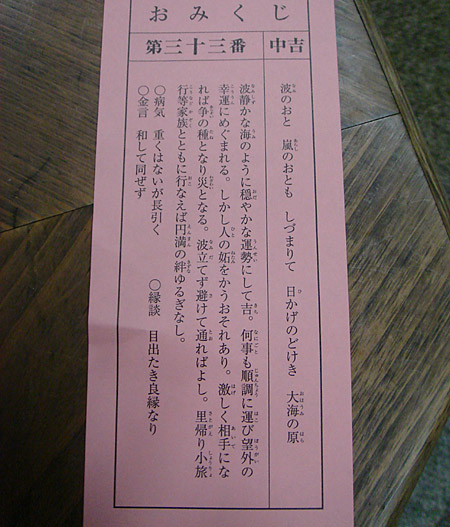 おみくじ
第三十三番 中吉
波のおと 嵐のおとも しづまりて 日かげのどけき 大海の原
波静かな海のように穏やかな運勢にして吉。何事も順調に運び望外の
幸運にめぐまれる。しかし人の妬をかうおそれあり。激しく相手にな
れば争の種となり災となる。波立てず避けて通ればよし。里帰り小旅
行等家族とともに行なえば円満の絆ゆるぎなし。
○病気 重くはないが長引く ○縁談 目出たき良縁なり
○金言 和して同ぜず